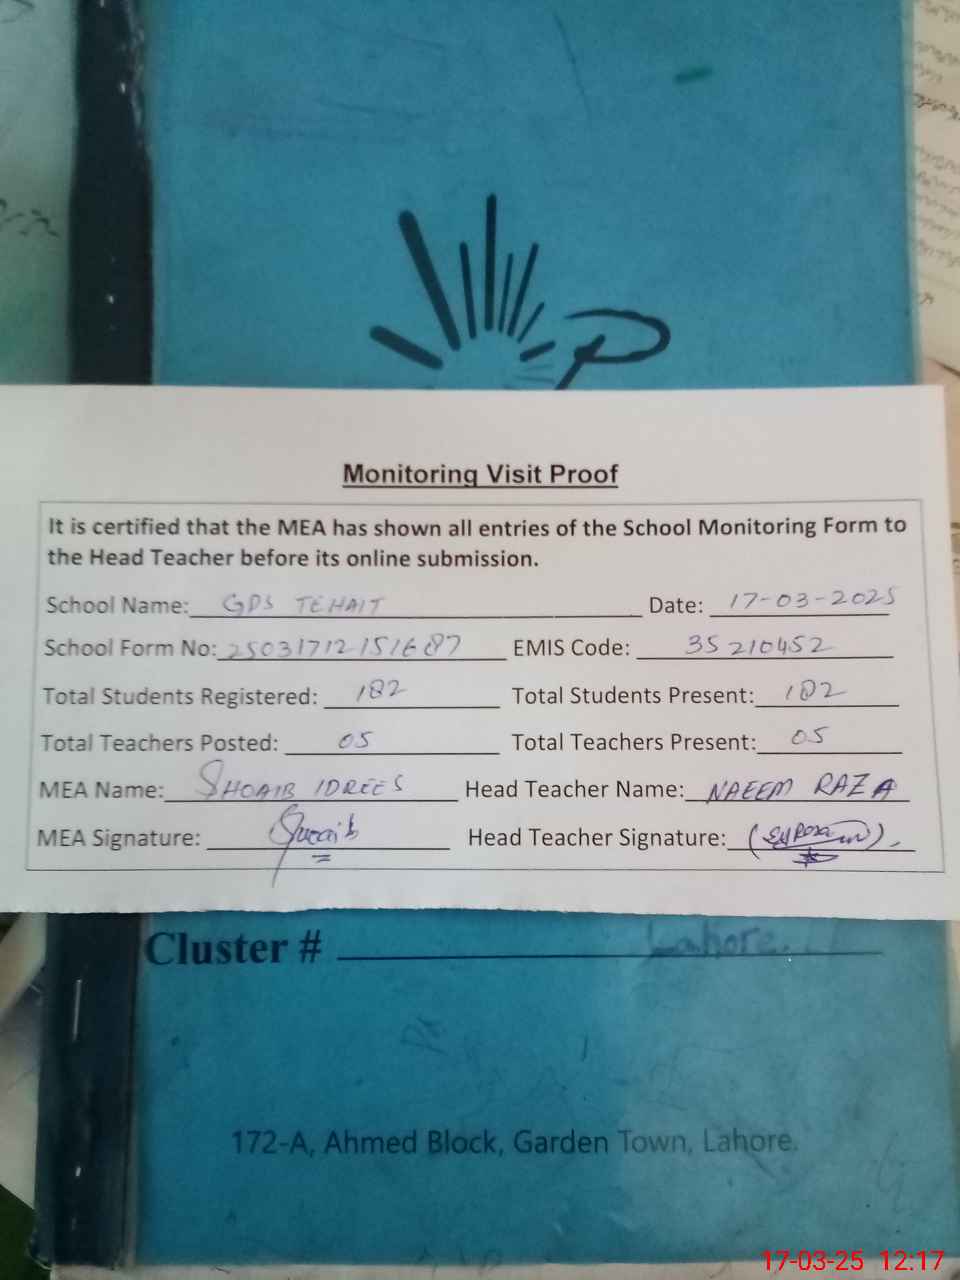 Monitoring Visit Proof
It is certified that the MEA has shown all entries of the School Monitoring Form to
the Head Teacher before its online submission.
School Name: GPS TEHAIT Date: 17-03-2025
School Form No: 25031712151687 EMIS Code: 35210452
Total Students Registered: 182 Total Students Present: 182
Total Teachers Posted: 05 Total Teachers Present: 05
MEA Name: SHOAIB IDREES Head Teacher Name: NAEEM RAZA
MEA Signature: Shoaib Head Teacher Signature:
Cluster # Lahore.
172-A, Ahmed Block, Garden Town, Lahore.
17-03-25 12:17